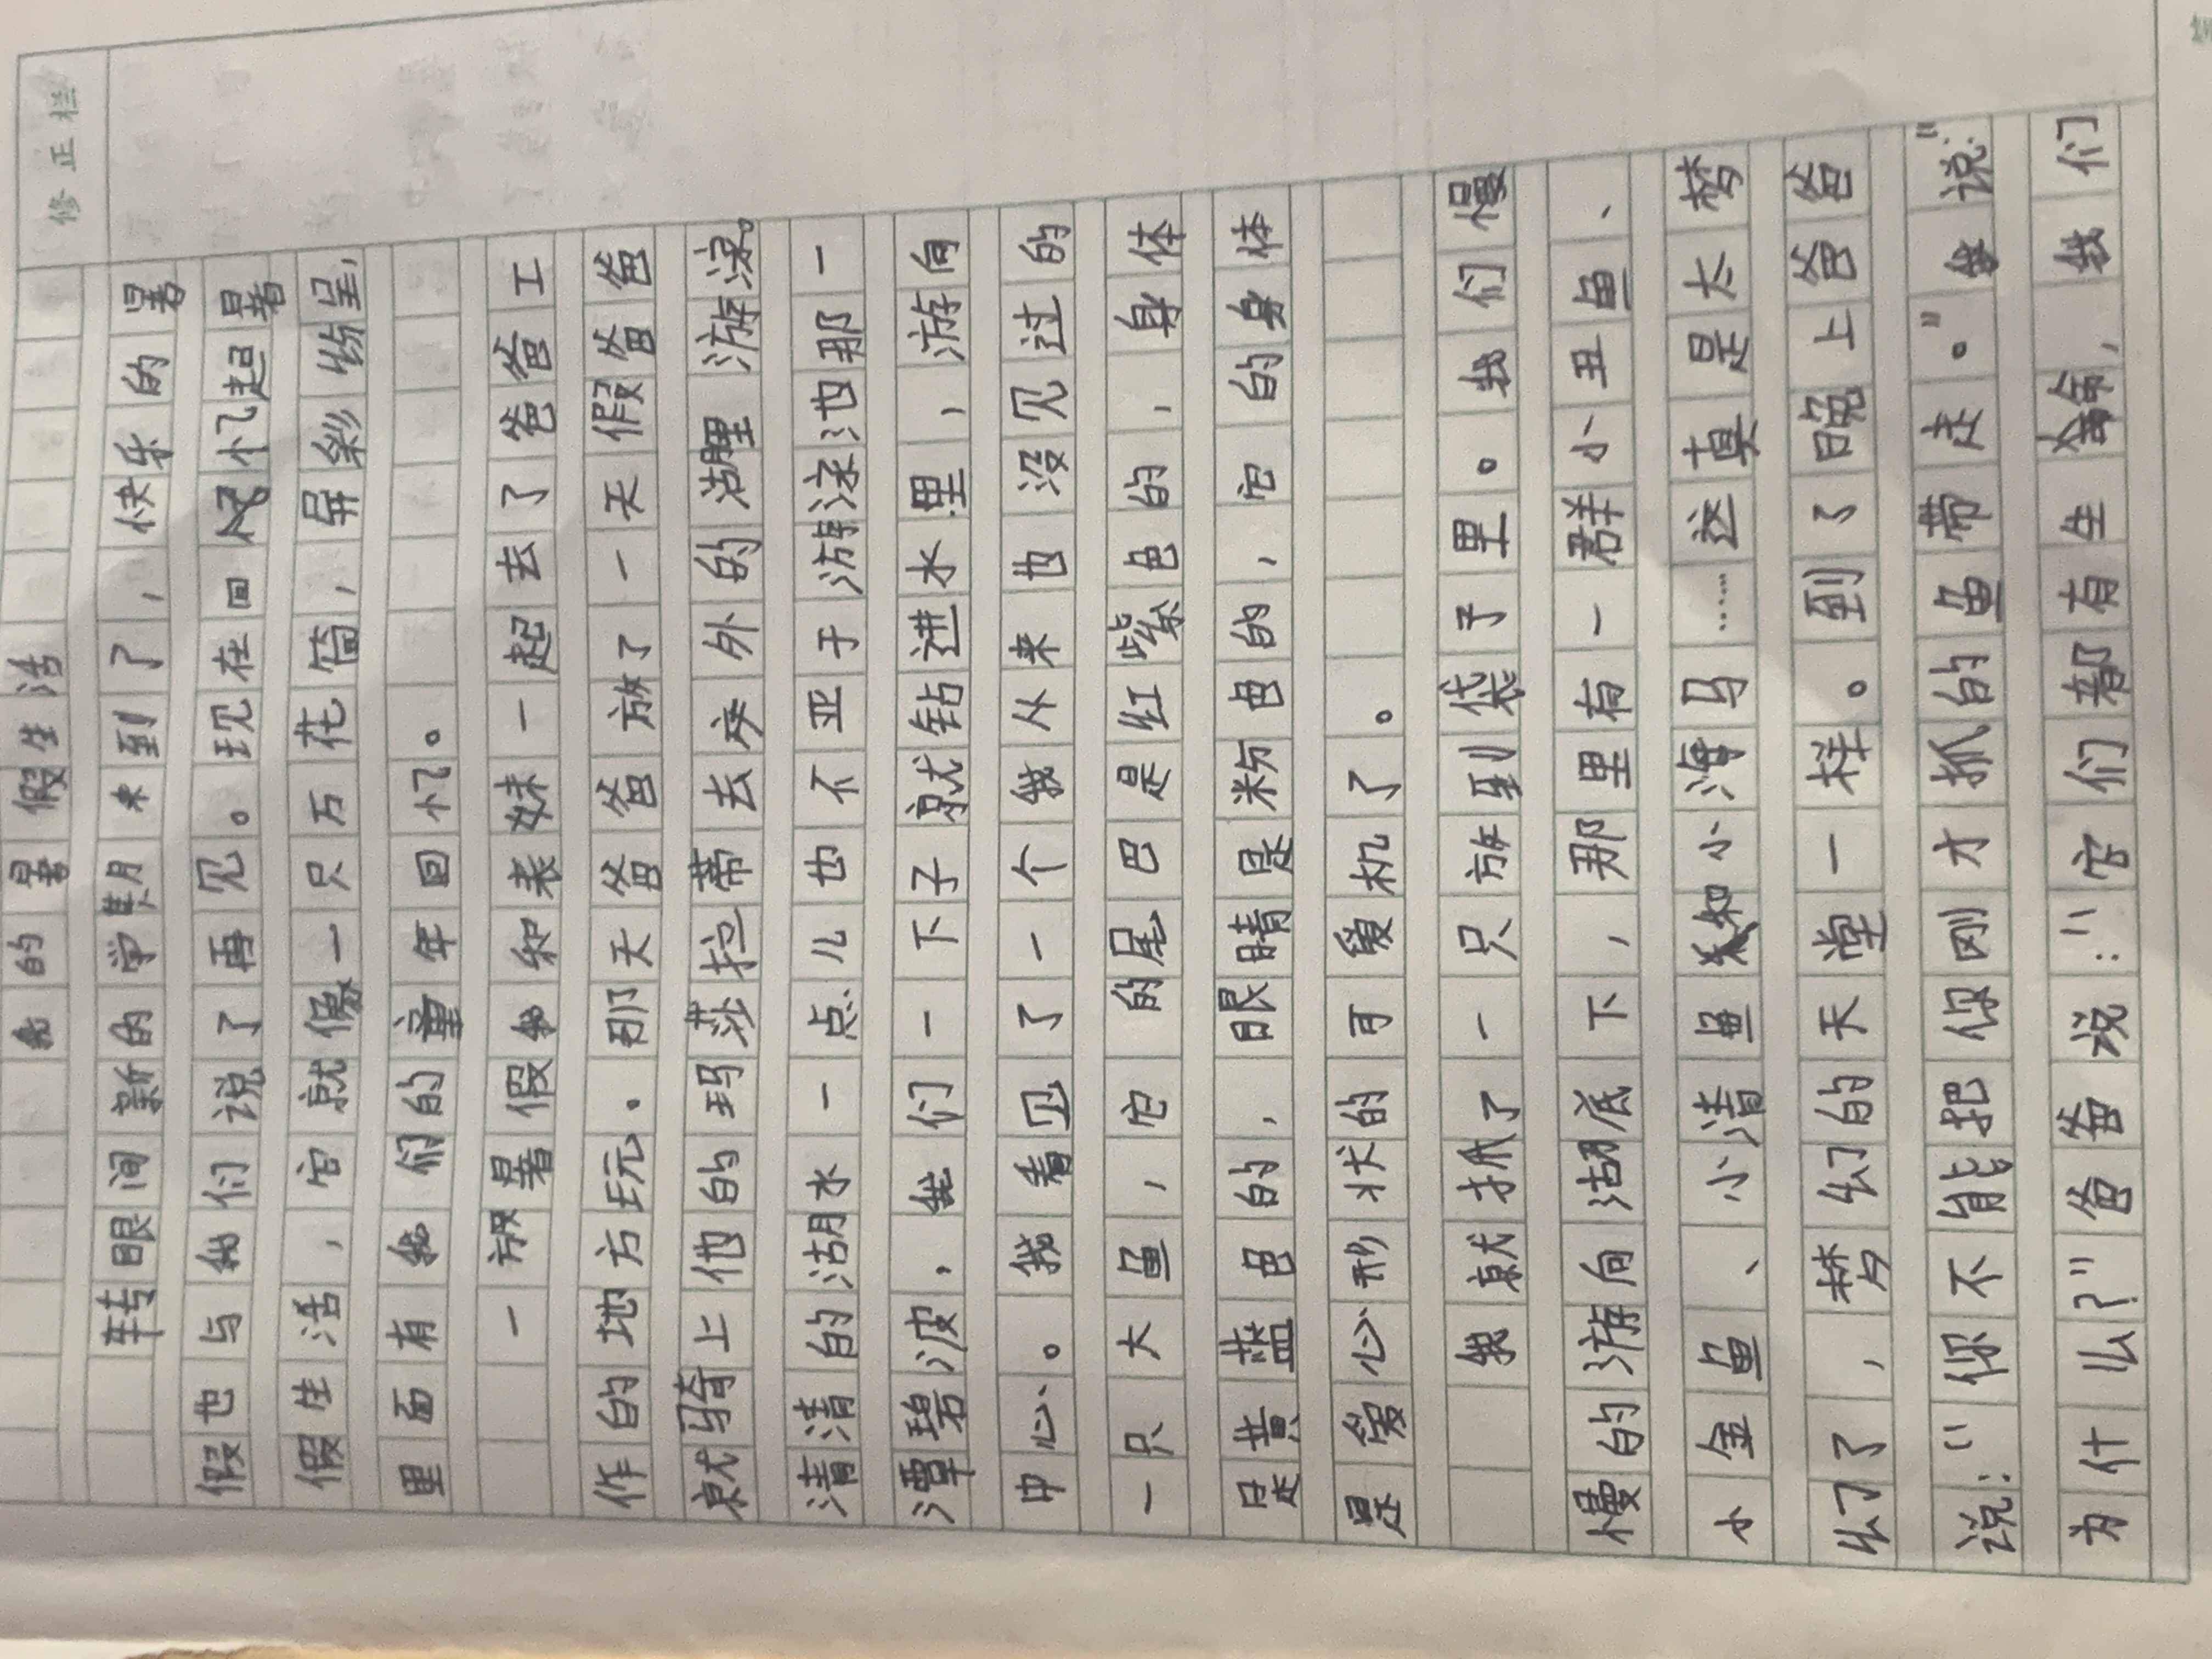 修正栏
我的暑假生活
转眼间新的学期来到了，快乐的暑
假也与我们说了再见。现在回忆起暑
假生活，它就像一只万花筒，屏彩纷呈，
里面有我们的童年回忆。
一放暑假我和表妹一起去了爸爸工
作的地方玩。那天爸爸放了一天假爸爸
就骑上他的玛莎拉蒂去外的湖里游泳。
清清的湖水一点儿也不亚于游泳池那一
潭碧波，我们一下子就钻进水里，游向
中心。我看见了一个我从来也没见过的
一只大鱼，它的尾巴是红紫色的，身体
是黄蓝色的，眼睛是粉色的，它的身体
是爱心形状的可爱机了。
我就抓了一只放到袋子里。我们慢
慢的游向湖底下，那里有一群小丑鱼、
小金鱼、小清鱼和小海马……这真是太梦
幻了，梦幻的天堂一样。到了晚上爸爸
说：“你不能把你刚才抓的鱼带走。”我说：“
为什么？”爸爸说：“它们都有生命，我们